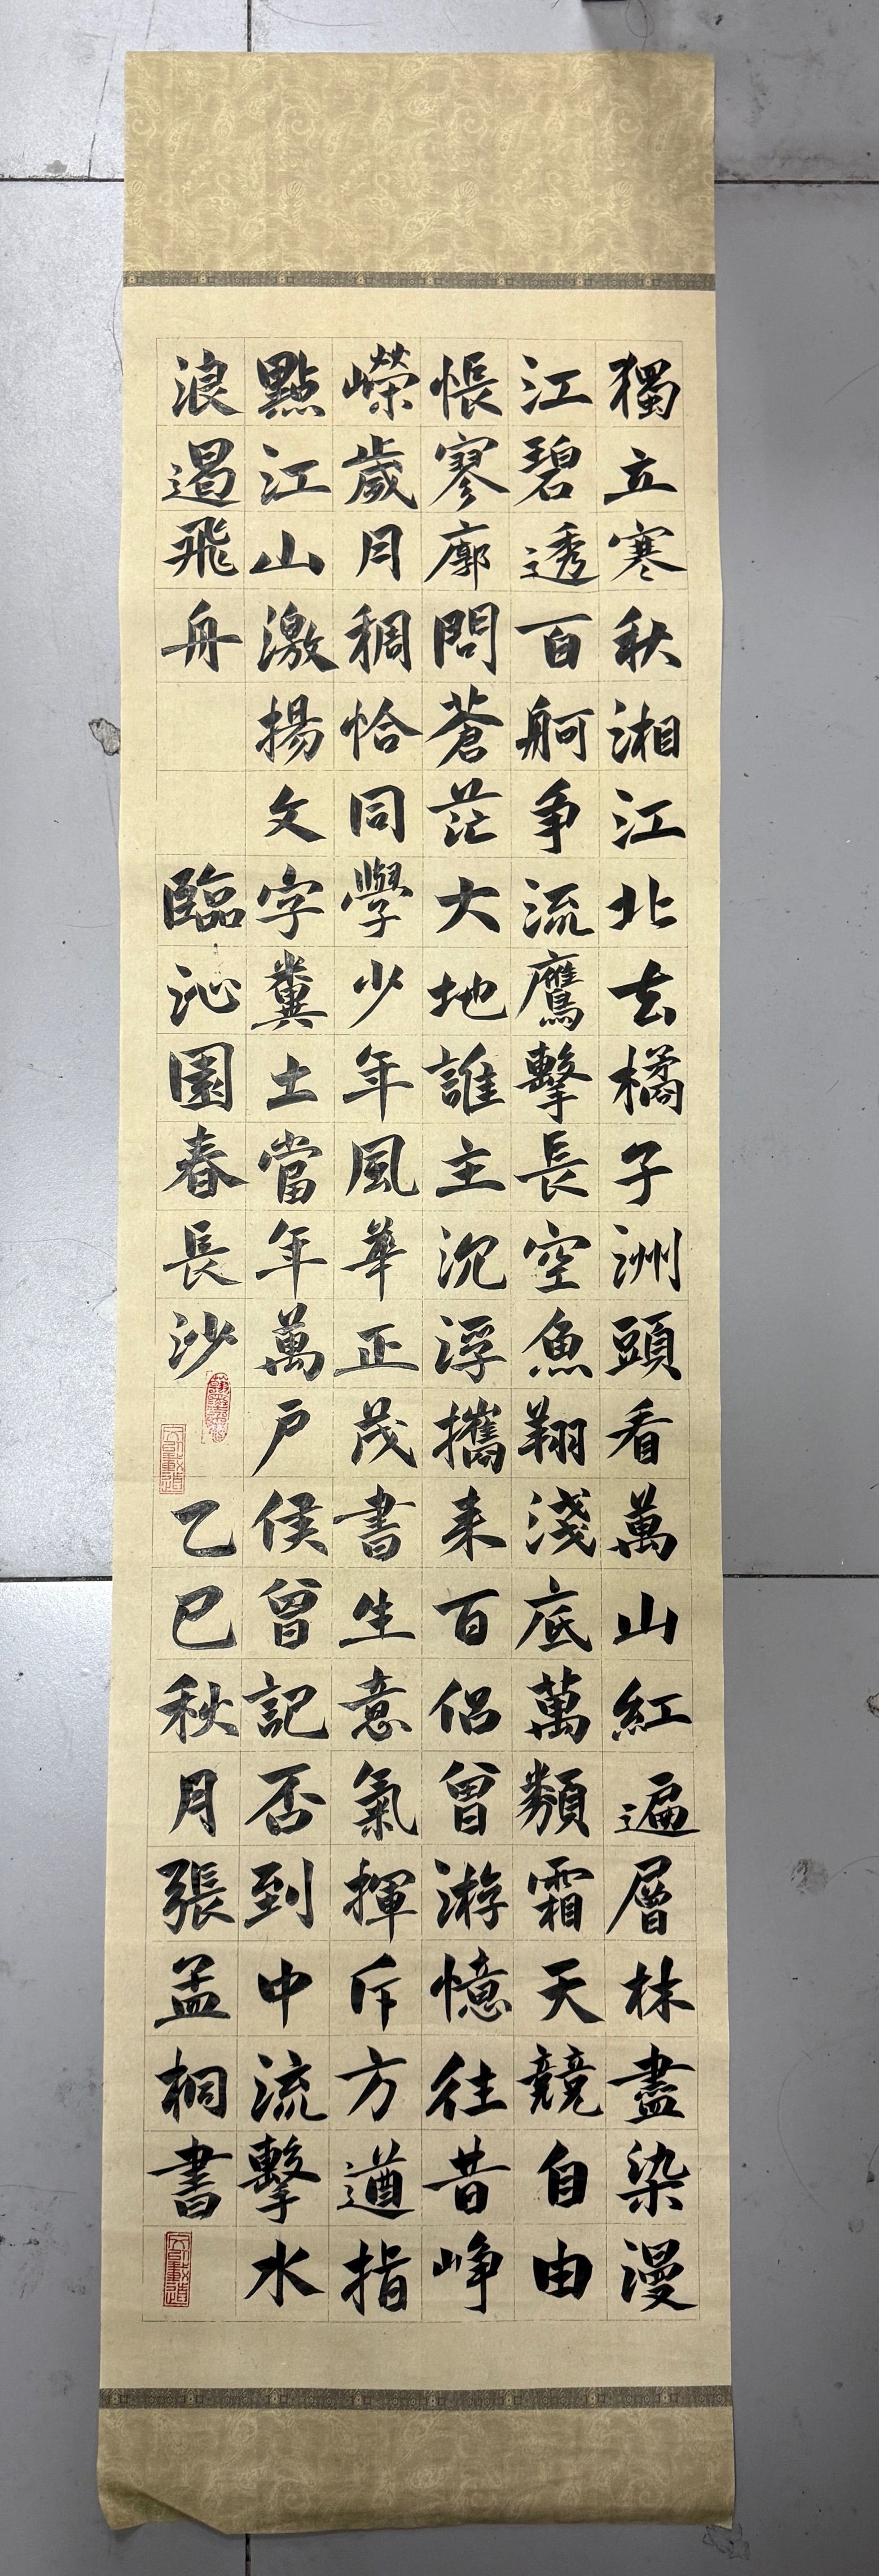 獨立寒秋湘江北去橘子洲頭看萬山紅遍層林盡染漫
江碧透百舸争流鷹擊長空魚翔淺底萬類霜天競自由
悵寥廓問蒼茫大地誰主沉浮攜来百侣曾游憶往昔崢
嶸歲月稠恰同學少年風華正茂書生意氣揮斥方遒指
點江山激揚文字糞土當年萬户侯曾記否到中流擊水
浪遏飛舟
臨沁園春長沙
乙巳秋月張孟桐書